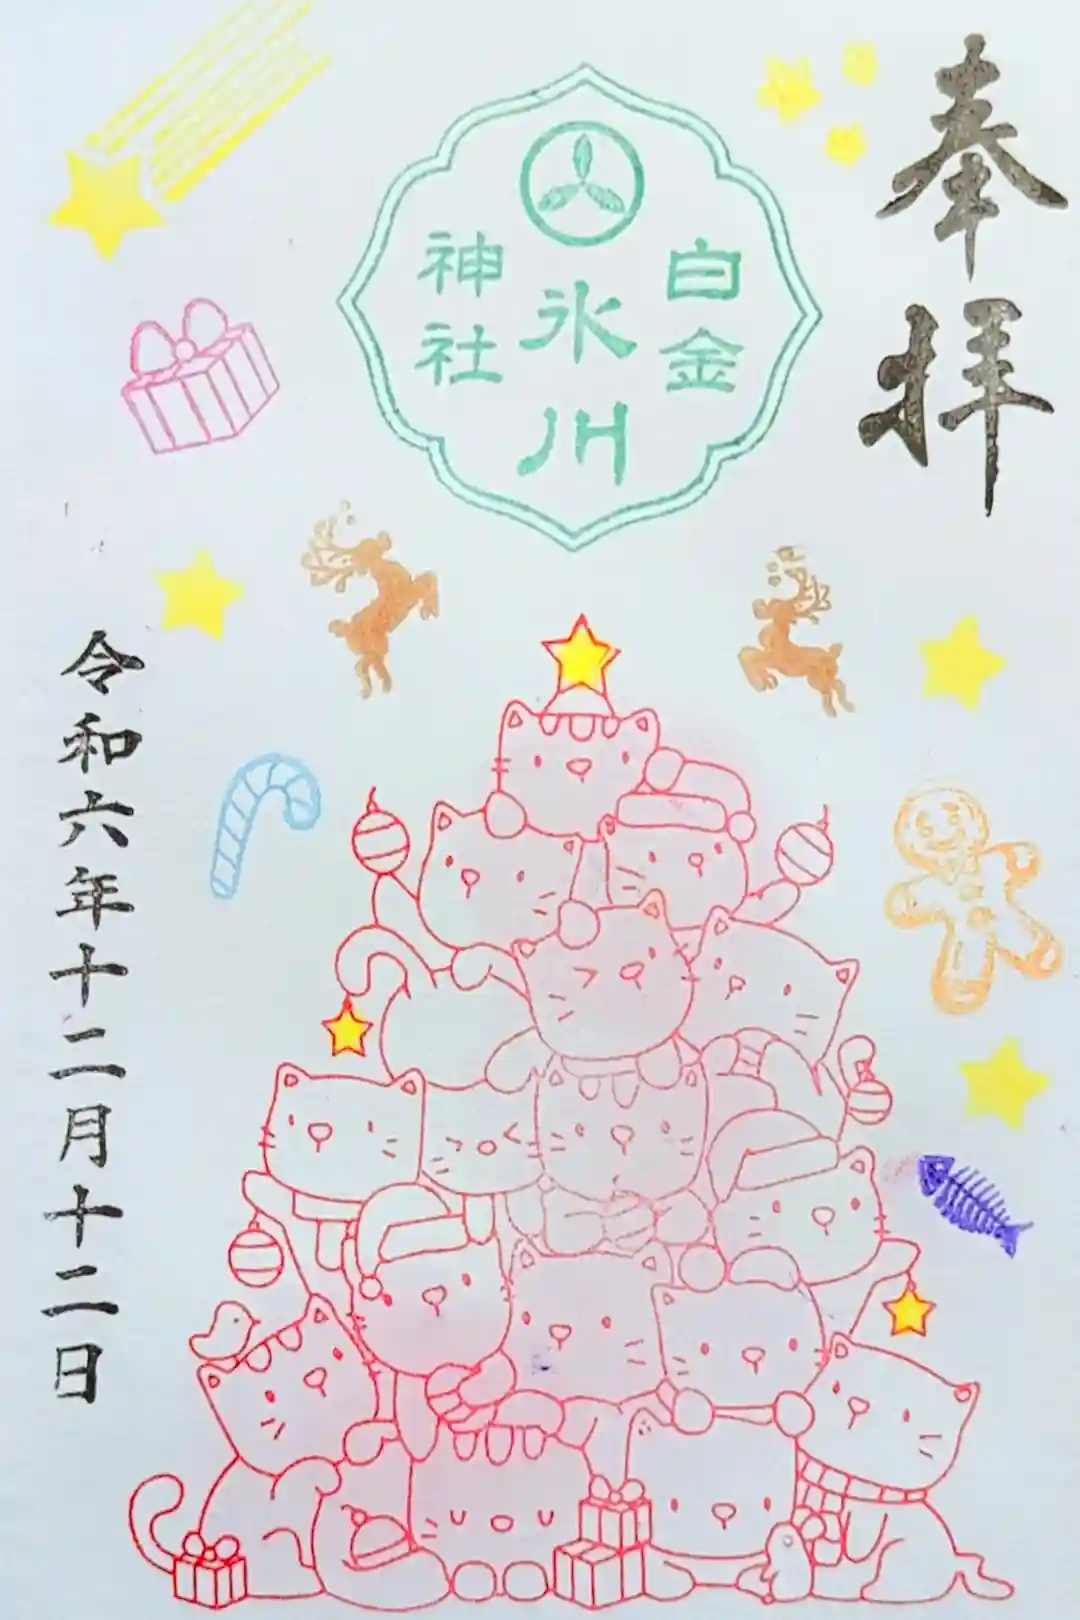 奉拝
白金
氷川
神社
令和六年十二月十二日